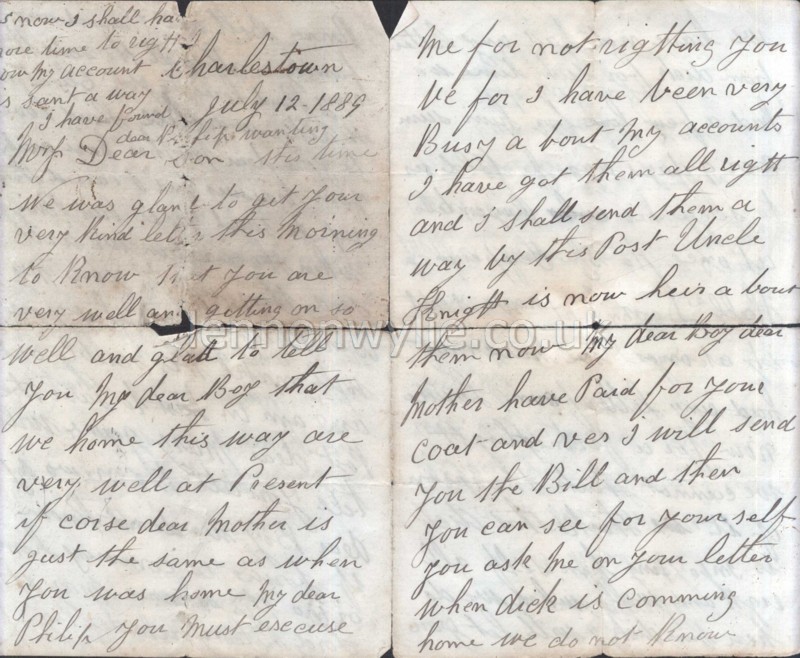 now I shall
more time to rigtt
my account
sant a way
I have found
Charlestown
July 12-1889
dear Philip wanting
My Dear Son this time
We was glad to git your
very kind letter this Morning
to Know that you are
very well and getting on so
well and glatt to tell
you My dear Boy that
we home this way are
very well at Present
if corse dear Mother is
just the same as when
you was home My dear
Philip you Must esecuse
Me for not rigtting you
be for I have been very
Busy a bout My accounts
I have got them all rigtt
and I shall send them a
way by this Post Uncle
Knigtt is now heir a bout
them now My dear Boy dear
Mother have Paid for your
coat and ves I will send
you the Bill and then
you can see for your self
you ask Me on your letter
when dick is comming
home we do not Know
lennonwylie.co.uk